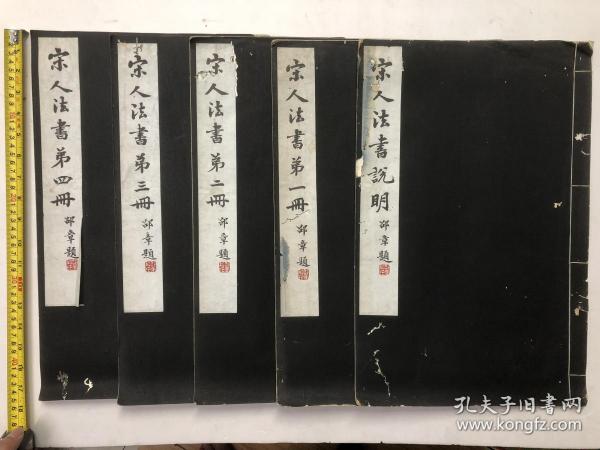 宋人法書說明
邵章題
宋人法書第一冊
邵章題
宋人法書第二冊
邵章題
宋人法書第三冊
邵章題
宋人法書第四冊
邵章題
孔夫子旧書网
www.kongfz.com